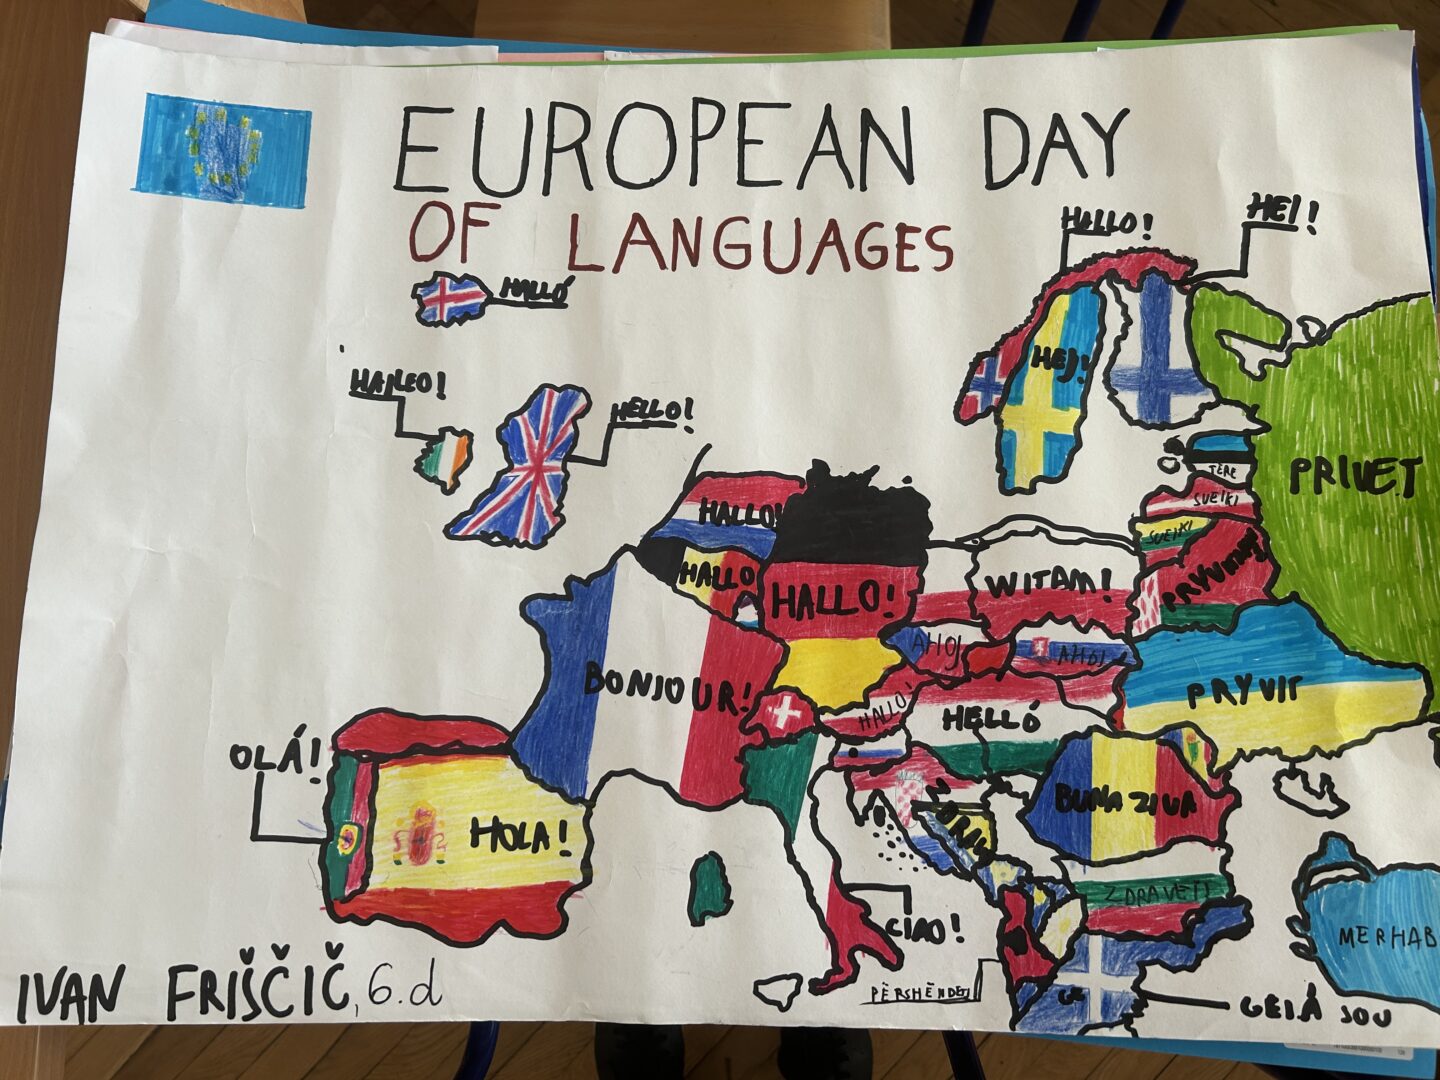 EUROPEAN DAY
OF LANGUAGES
HALLO!
HEI!
HALLÓ
HEJ!
HELLO!
PRIVET
TERE
SVEIKI
SVEIKI
HALLO!
HALLO
HALLO!
WITAM!
AHOJ
AHOJ
BONJOUR!
PRYVIT
HALLO!
HELLÓ
OLÁ!
HOLA!
BUNA ZIUA
ZDRAVETI
CIAO!
MERHAB
PËRSHËNDE
GEIÁ SOU
IVAN FRIŠČIČ, 6.d